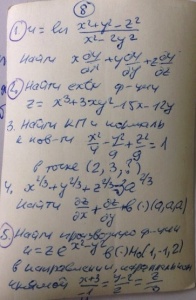 8
1. u = ln (x²+y²-z²)/(x²-2y²)
Найти x ∂u/∂x + y ∂u/∂y + z ∂u/∂z
2. Найти экстр ф-ции
z = x³+3xy²-15x-12y
3. Найти КП и нормаль
к пов-ти x²/4 - y²/9 + z²/9 = 1
в точке (2, 3, ?)
4. x^2/3 + y^2/3 + z^2/3 = a^2/3
Найти ∂z/∂x + ∂z/∂y в (·)(a,a,a)
5. Найти производную ф-ции
u = z e^x²-y² в (·) M₀(1,-1,2)
в направлении,
прямой